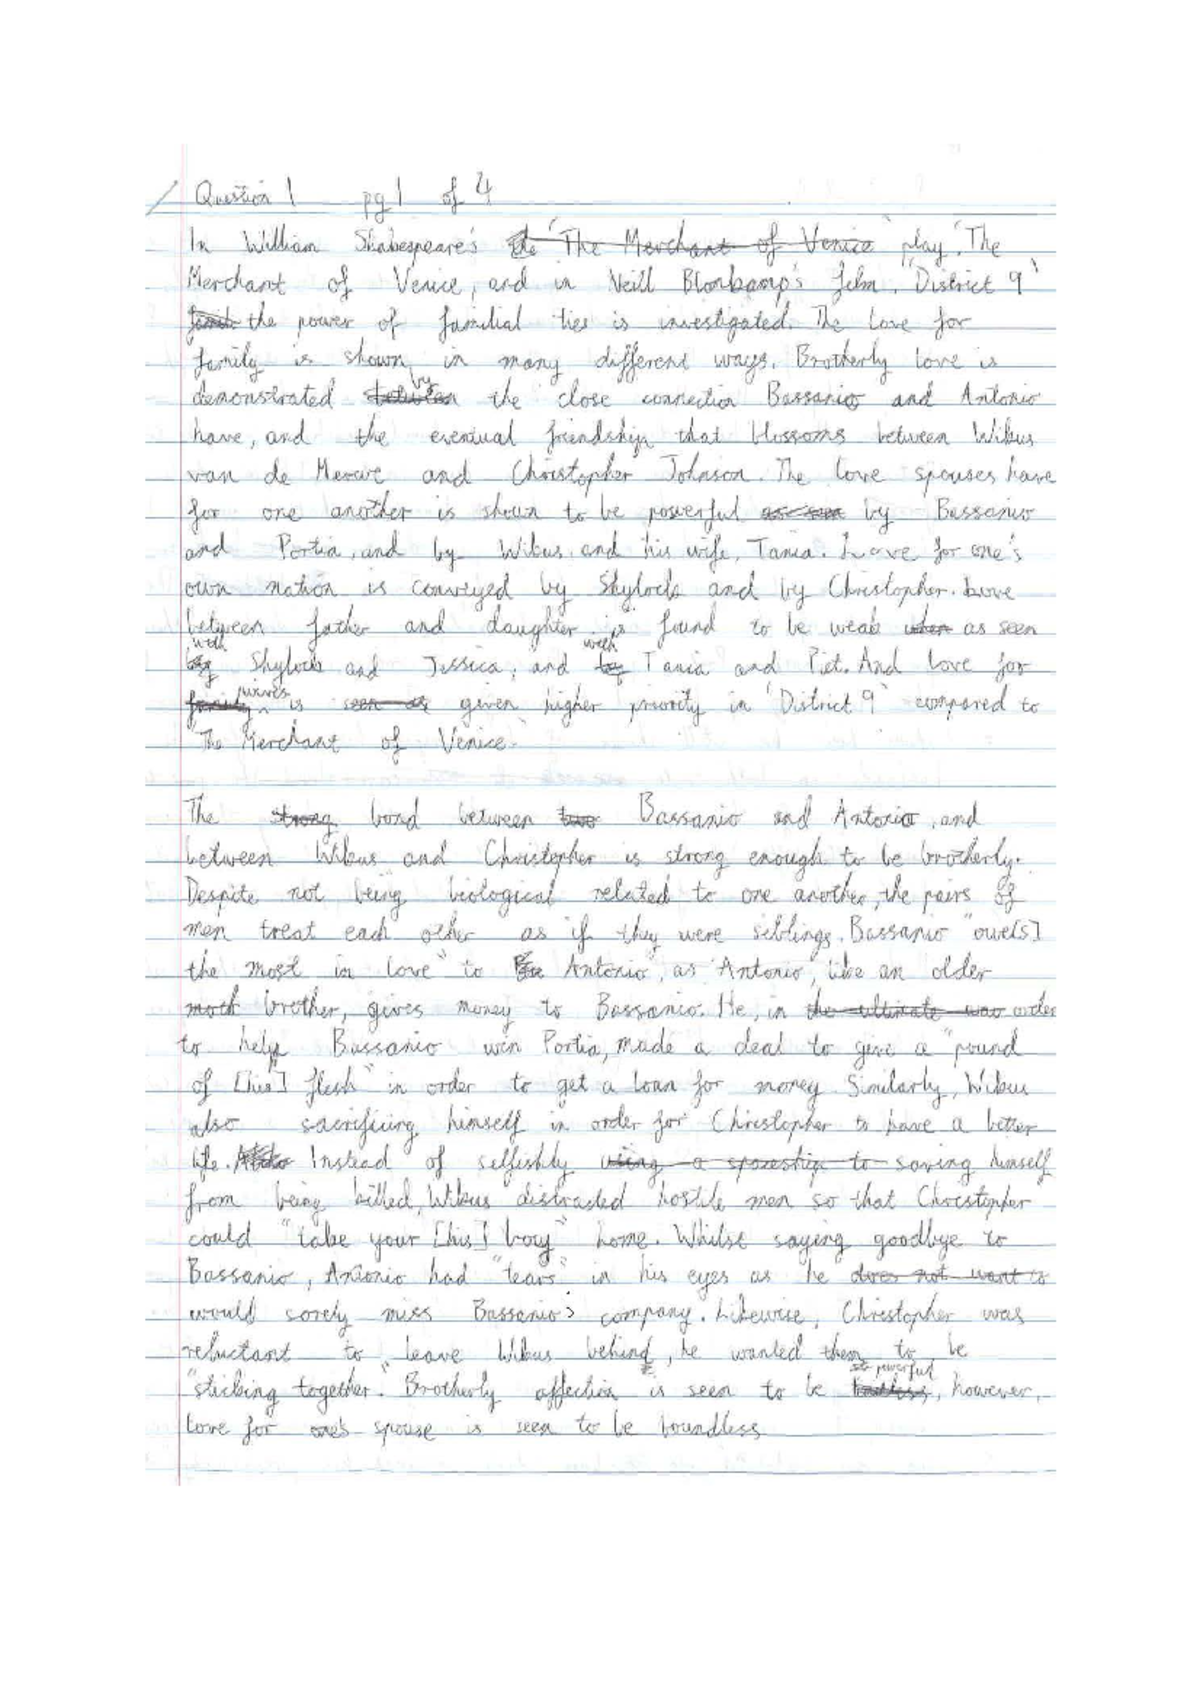 Question 1 pg 1 of 4
In William Shakespeare's the 'The Merchant of Venice' play 'The
Merchant of Venice, and in Neill Blonkamp's film, 'District 9'
the power of familial ties is investigated. The love for
family is shown in many different ways. Brotherly love is
demonstrated between by the close connection Bassanio and Antonio
have, and the eventual friendship that blossoms between Wikus
van de Merwe and Christopher Johnson. The love spouses have
for one another is shown to be powerful as seen by Bassanio
and Portia, and by Wikus and his wife, Tania. Love for one's
own nation is conveyed by Shylock and by Christopher. Love
between father and daughter is found to be weak when as seen
with by Shylock and Jessica, and with by Tania and Piet. And love for
family wives is seen as given higher priority in 'District 9' compared to
'The Merchant of Venice.'
The strong bond between two Bassanio and Antonio, and
between Wikus and Christopher is strong enough to be brotherly.
Despite not being biological related to one another, the pairs of
men treat each other as if they were siblings. Bassanio "owe[s]
the most in love" to Antonio, as Antonio, like an older
brother, gives money to Bassanio. He, in the ultimate way order
to help Bassanio win Portia, made a deal to give a "pound
of [his] flesh" in order to get a loan for money. Similarly, Wikus
also sacrificing himself in order for Christopher to have a better
life. Instead of selfishly using a spaceship to saving himself
from being killed, Wikus distracted hostile men so that Christopher
could "take your [his] boy" home. Whilst saying goodbye to
Bassanio, Antonio had "tears" in his eyes as he does not want to
would sorely miss Bassanio's company. Likewise, Christopher was
reluctant to leave Wikus behind, he wanted them to be
"sticking together." Brotherly affection is seen to be powerful, however,
love for one's spouse is seen to be boundless